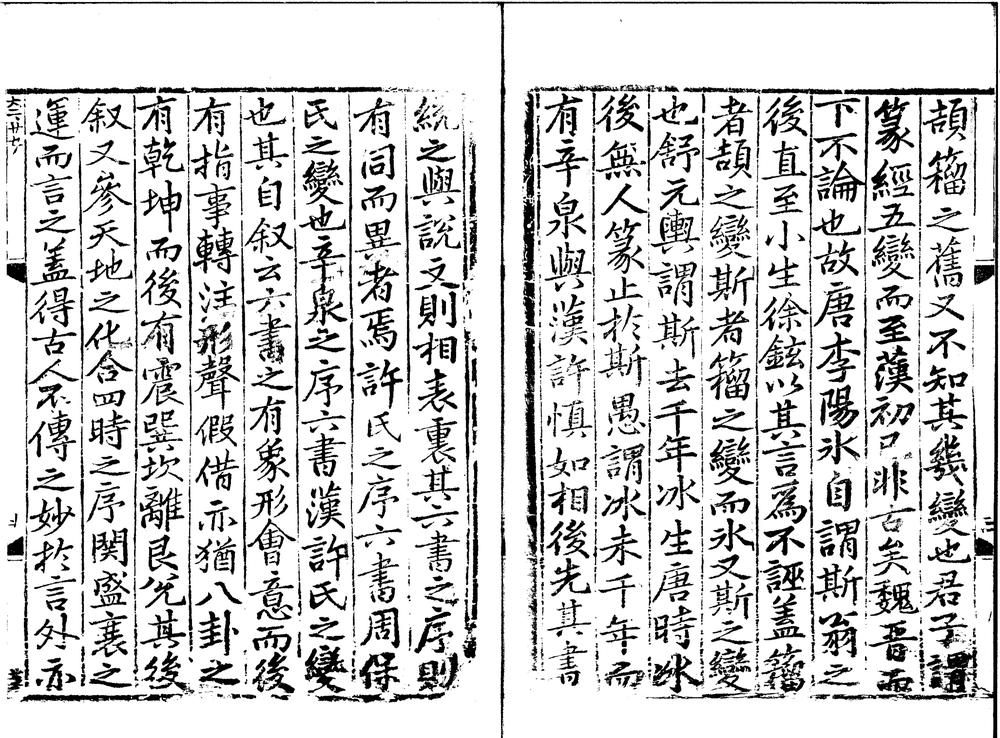 頡籀之舊又不知其幾變也君子謂
篆經五變而至漢初已非古矣魏晉而
下不論也故唐李陽氷自謂斯翁之
後直至小生徐鉉以其言爲不誣蓋籀
者頡之變斯者籀之變而氷又斯之變
也舒元輿謂斯去千年冰生唐時冰
後無人篆止於斯愚謂冰未千年而
有辛泉與漢許慎如相後先其書
統之與說文則相表裏其六書之序則
有同而異者焉許氏之序六書周保
氏之變也辛泉之序六書漢許氏之變
也其自叙云六書之有象形會意而後
有指事轉注形聲假借亦猶八卦之
有乾坤而後有震巽坎離艮兌其後
叙又參天地之化合四時之序関盛衰之
運而言之蓋得古人不傳之妙於言外亦